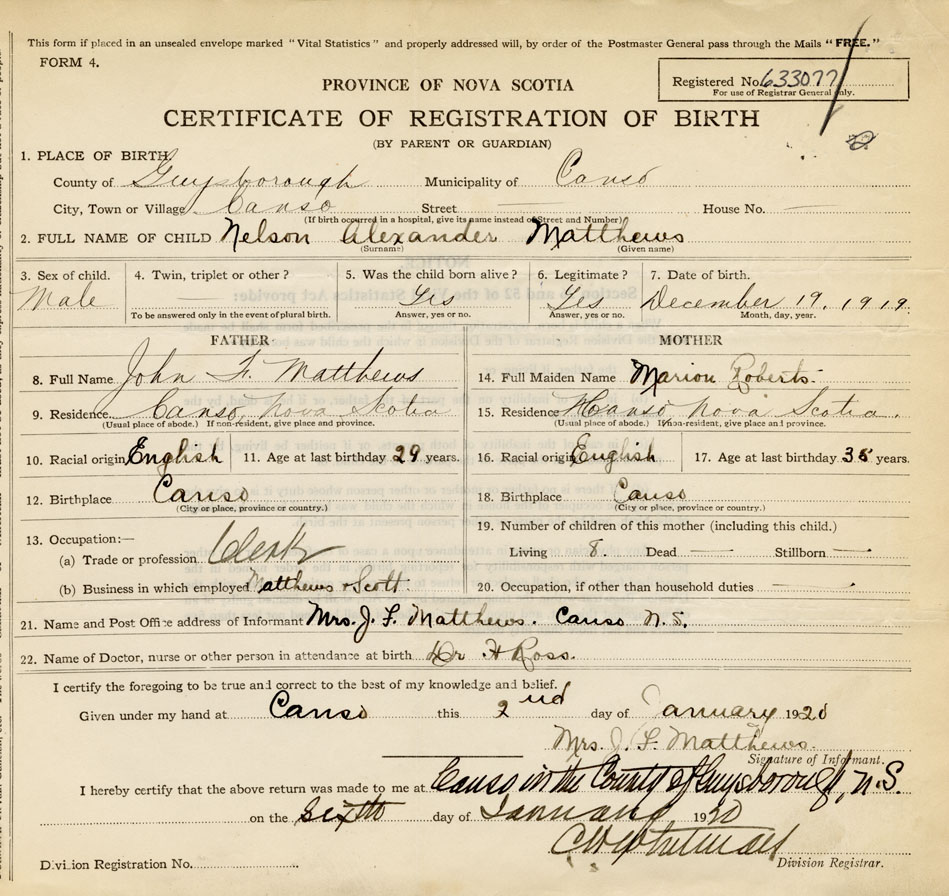 This form if placed in an unsealed envelope marked "Vital Statistics" and properly addressed will, by order of the Postmaster General pass through the Mails "FREE."
FORM 4.
Registered No. 633077
For use of Registrar General only.
PROVINCE OF NOVA SCOTIA
CERTIFICATE OF REGISTRATION OF BIRTH
(BY PARENT OR GUARDIAN)
1. PLACE OF BIRTH
County of Guysborough Municipality of Canso
City, Town or Village Canso Street — House No. —
(If birth occurred in a hospital, give its name instead of Street and Number)
2. FULL NAME OF CHILD Nelson Alexander Matthews
(Surname) (Given name)
3. Sex of child. 4. Twin, triplet or other? 5. Was the child born alive? 6. Legitimate? 7. Date of birth.
Male — Yes Yes December 19. 1919.
To be answered only in the event of plural birth. Answer, yes or no. Answer, yes or no. Month, day, year.
FATHER
8. Full Name John F. Matthews
9. Residence Canso, Nova Scotia
(Usual place of abode.) If non-resident, give place and province.
10. Racial origin English 11. Age at last birthday 29 years.
12. Birthplace Canso
(City or place, province or country.)
13. Occupation:—
(a) Trade or profession Clerk
(b) Business in which employed Matthews & Scott
MOTHER
14. Full Maiden Name Marion Roberts.
15. Residence Canso Nova Scotia.
(Usual place of abode.) If non-resident, give place and province.
16. Racial origin English 17. Age at last birthday years.
18. Birthplace Canso
(City or place, province or country.)
19. Number of children of this mother (including this child.)
Living 8. Dead — Stillborn —
20. Occupation, if other than household duties —
21. Name and Post Office address of Informant Mrs. J. F. Matthews. Canso N. S.
22. Name of Doctor, nurse or other person in attendance at birth Dr H Ross.
I certify the foregoing to be true and correct to the best of my knowledge and belief.
Given under my hand at Canso this 2nd day of January 1920
Mrs. J. F. Matthews.
Signature of Informant.
I hereby certify that the above return was made to me at Canso in the County of Guysborough, N.S.
on the sixth day of January 1920
C W Whitman
Division Registration No. Division Registrar.